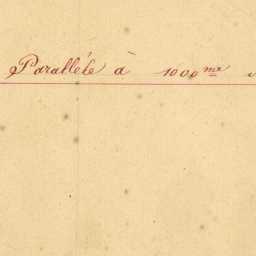 Parallèle à 1000me